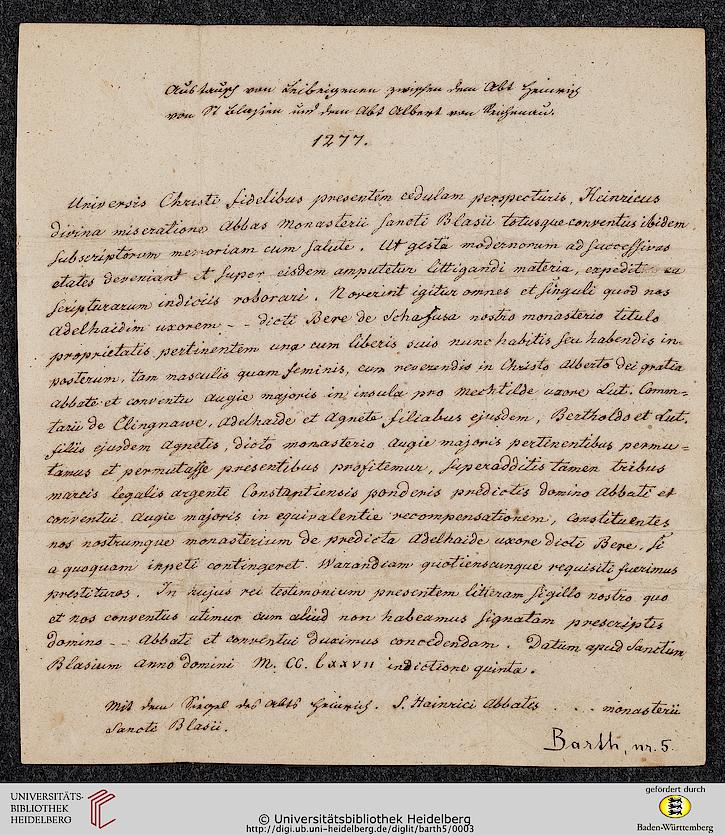 Austausch von Leibeignenen zwischen dem Abt Heinrich
von St Blasien und dem Abt Albert von Reichenau.
1277.
Universis Christi fidelibus presentem cedulam perspecturis, Heinricus
divina miseratione Abbas monasterii sancti Blasii totusque conventus ibidem
subscriptorum memoriam cum salute. Ut gesta modernorum ad successivas
etates deveniant et super eisdem amputetur littigandi materia, expedit ea
scripturarum indiciis roborari. Noverint igitur omnes et singuli quod nos
Adelhaidim uxorem -- dicti Bere de Schafusa nostro monasterio titulo
proprietatis pertinentem una cum liberis suis nunc habitis seu habendis in
posterum, tam masculis quam feminis, cum reverendis in Christo Alberto dei gratia
abbate et conventu Augie majoris in insula pro Mechtilde uxore Lut. Comm-
tarii de Clingnawe, Adelhaide et Agnete filiabus ejusdem, Bertholdo et Lut.
filiis ejusdem Agnetis, dicto monasterio Augie majoris pertinentibus permu=
tamus et permutasse presentibus profitemur, superadditis tamen tribus
marcis legalis argenti Constantiensis ponderis predictis domino Abbati et
conventui Augie majoris in equivalentie recompensationem, constituentes
nos nostrumque monasterium de predicta Adelhaide uxore dicti Bere, si
a quoquam inpeti contingeret Warandiam quotienscunque requisiti fuerimus
prestituros. In hujus rei testimonium presentem litteram sigillo nostro quo
et nos conventus utimur cum aliud non habeamus signatam prescriptis
domino -- Abbati et conventui duximus concedendam. Datum apud Sanctum
Blasium anno domini M. CC. lxxvii indictione quinta.
Mit dem Siegel des Abts Heinrich. S. Hainrici Abbatis . . . monasterii
Sancti Blasii.
Barth, nr. 5.
UNIVERSITÄTS-
BIBLIOTHEK
HEIDELBERG
© Universitätsbibliothek Heidelberg
http://digi.ub.uni-heidelberg.de/diglit/barth5/0003
gefördert durch
Baden-Württemberg